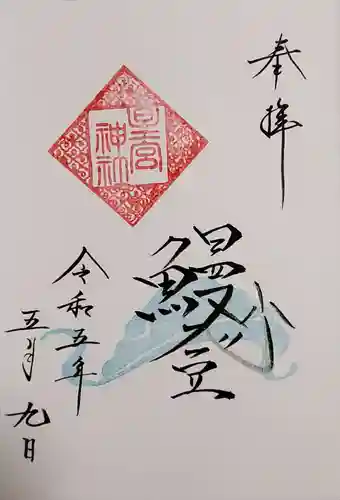 奉拝
鰻
令和五年
五月九日
神社